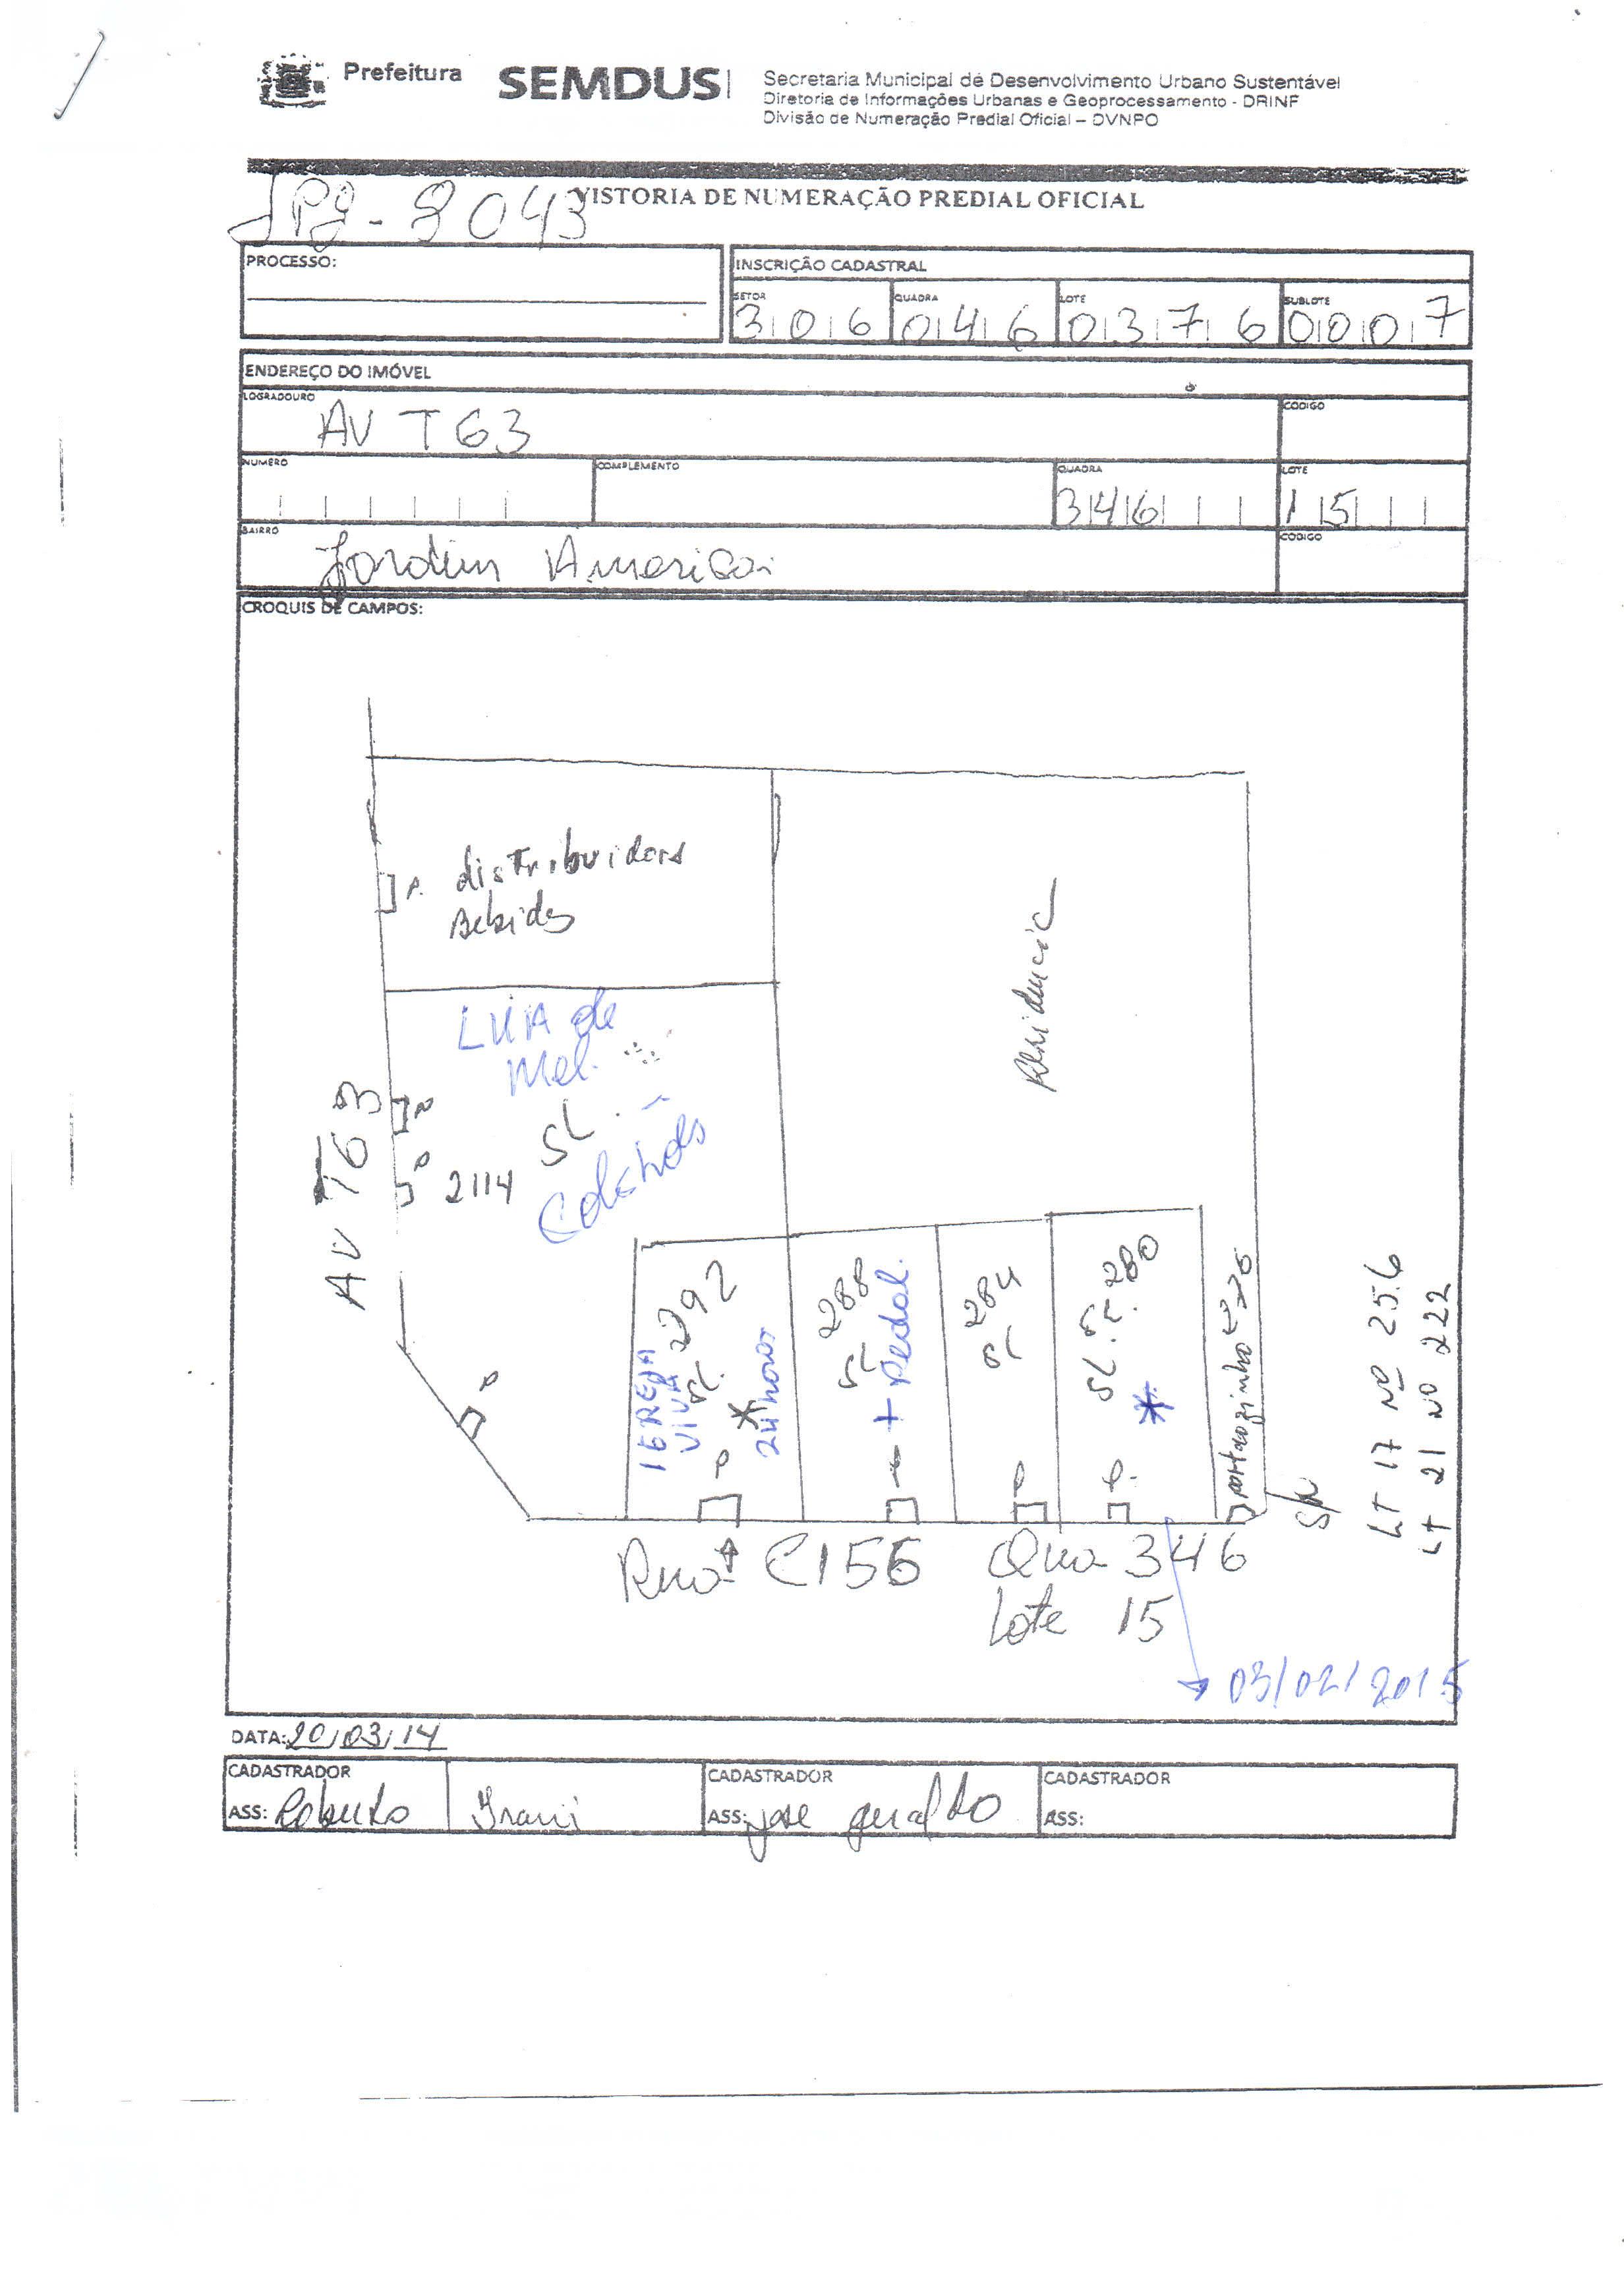 Prefeitura SEMDUS
Secretaria Municipal de Desenvolvimento Urbano Sustentável
Diretoria de Informações Urbanas e Geoprocessamento - DRINF
Divisão de Numeração Predial Oficial – DVNPO
VISTORIA DE NUMERAÇÃO PREDIAL OFICIAL
JPg - 9043
PROCESSO:
INSCRIÇÃO CADASTRAL
SETOR QUADRA LOTE SUBLOTE
306 046 0376 0007
ENDEREÇO DO IMÓVEL
LOGRADOURO CODIGO
AV T63
NUMERO COMPLEMENTO QUADRA LOTE
346 15
BAIRRO CODIGO
Jardim America
CROQUIS DE CAMPOS:
P. distribuidora
Bebidas
LUA de
Mel.
SL
Colchões
Residencia
AV T63
P
2114
P
IGREJA
VIVA
SL. 292
24 horas
P
288
SL
+ Pedal.
284
SL
P
SL. 280
P.
portaozinho
S/N
LT 17 Nº 256
LT 21 Nº 222
Rua C156
Qua 346
Lote 15
03/02/2015
DATA: 20/03/14
CADASTRADOR CADASTRADOR CADASTRADOR
ASS: Roberto Irani ASS: jose geraldo ASS: